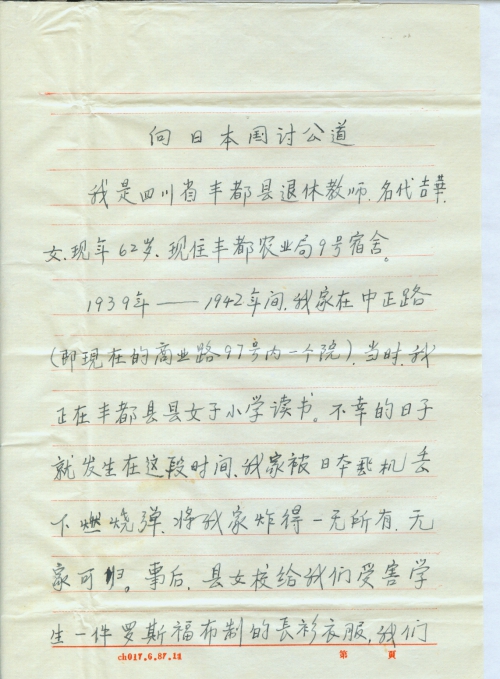 向日本国讨公道
我是四川省丰都县退休教师,名代吉華,
女,现年62岁、现住丰都农业局9号宿舍。
1939年——1942年间,我家在中正路
(即现在的商业路97号内一个院),当时,我
正在丰都县县女子小学读书。不幸的日子
就发生在这段时间,我家被日本飞机丢
下燃烧弹,将我家炸得一无所有,无
家可归。事后,县女校给我们受害学
生一件罗斯福布制的長衫衣服,我们
ch017.6.87.12 第 頁